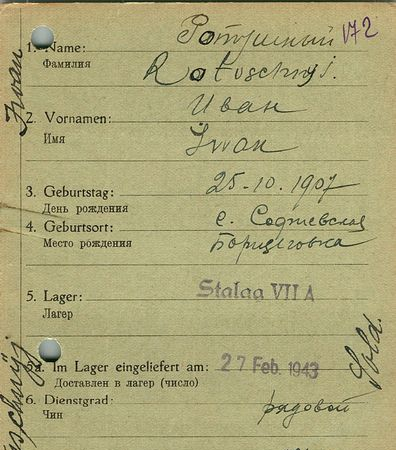 1. Name: Ротушный 172
Фамилия Rotuschnyj.
2. Vornamen: Иван
Имя Iwan
3. Geburtstag: 25-10.1907
День рождения
4. Geburtsort: с.
Место рождения
5. Lager: Stalag VII A
Лагерь
5a. Im Lager eingeliefert am: 27 Feb. 1943
Доставлен в лагерь (число)
6. Dienstgrad: рядовой
Чин
Iwan
Sold.